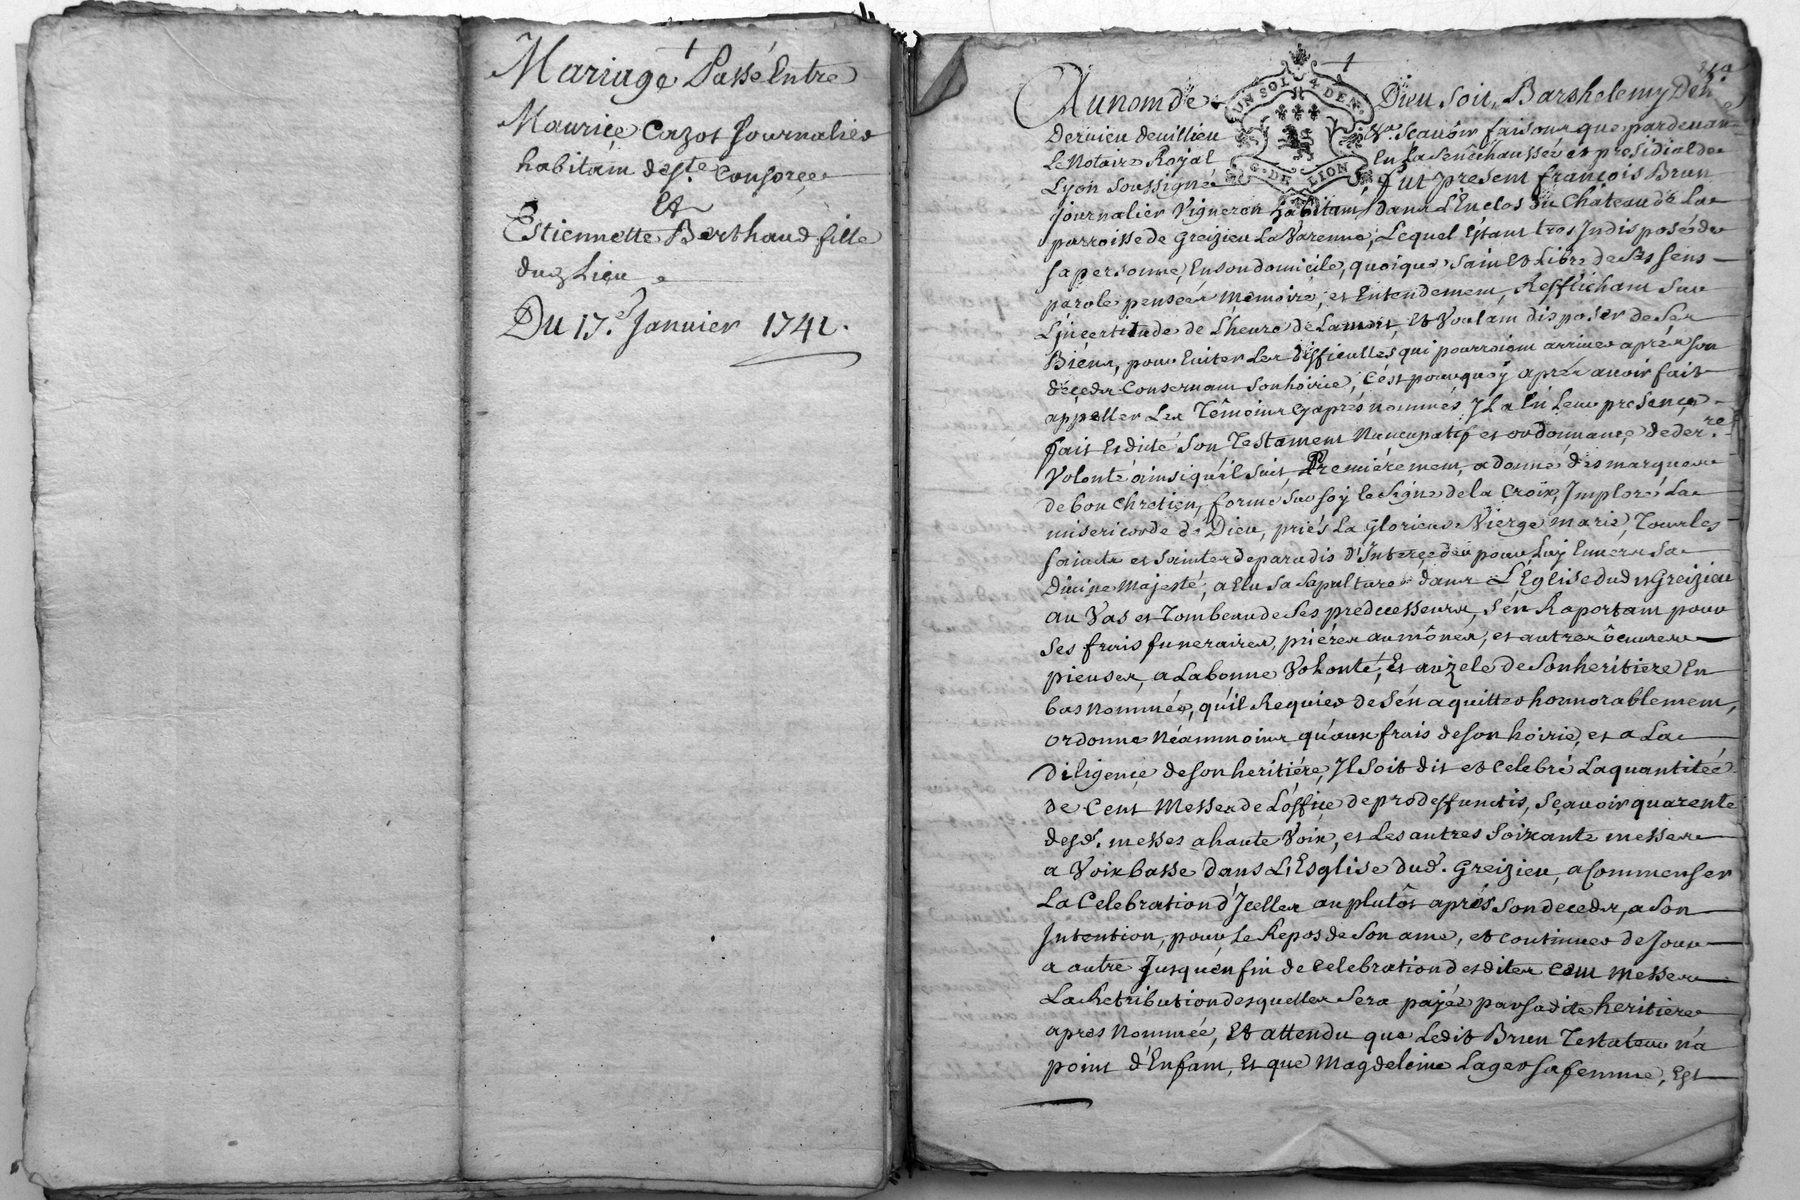 Mariage Passé Entre
Maurice Cazot Journalier
habitant de Ste. Consorce
Et
Estiennette Berthaud fille
dud Lieu
Du 17.e Janvier 1741.
Au nom de Dieu soit, Barthelemy
UN SOL 4 DEN.
G. DE LION
Dervieu devillieu Sçavoir faisons que pardevant
Le Notaire Royal En la Senêchaussée et presidial de
Lyon soussigné fut present françois Brun
journalier Vigneron habitant dans L'Enclos du Château de La
parroisse de Greizieu La Varenne, Lequel Estant tres Indisposé de
sa personne, En son domicile, quoique sain Et Libre de ses sens
parole pensées memoire, et Entendement, Refflichant sur
L'incertitude de L'heure de La mort, Et Voulant disposer de ses
Biens, pour Eviter Les difficultés qui pourroient arriver aprés son
décedx Consernant son hoirie, C'est pourquoy aprés avoir fait
appeller Les Têmoins Cy aprés nommés, Il a En Leur presence
fait Et dicté son Testament Nuncupatif et ordonnance de der.re
Volonté ainsi qu'il suit, Premiérement, a donné des marques
de bon Chretien, formé sur soy le signe de la Croix, Imploré La
misericorde de Dieu, priés La Glorieuse Vierge marie, Tous les
saints et saintes de paradis d'Interçeder pour Luy Envers sa
Divine Majesté, a Elu sa sepulture dans L'Eglise dudit Greizieu
au Vas et Tombeau de ses predecesseurs, s'en Raportant pour
ses frais funeraires, priéres aumônes, et autres ôeuvres
pieuses, a La bonne Volonté, Et au zele de son heritiere En
bas nommée, qu'il Requier de s'en aquitter honnorablement,
ordonne Néammoins qu'aux frais de son hoirie, et a La
diligence de son heritiére, Il soit dit et celebré La quantitée
de Cent Messes de L'office de pro deffunctis, sçavoir quarente
desd. messes a haute Voix, et Les autres soixante messes
a Voix basse dans L'Esglise dud. Greizieu, a Commenser
La Celebration d'Icelles au plutôt aprés son decedx, a son
Intention, pour Le Repos de son ame, et continuer de Jour
a autre Jusqu'en fin de Celebration desdites Cent messes
La Retribution desquelles sera payée par sa dite heritiere
apres Nommée, Et attendu que Ledit Brun Testateur n'a
point d'Enfant, Et que Magdeleine Lager sa femme, Est